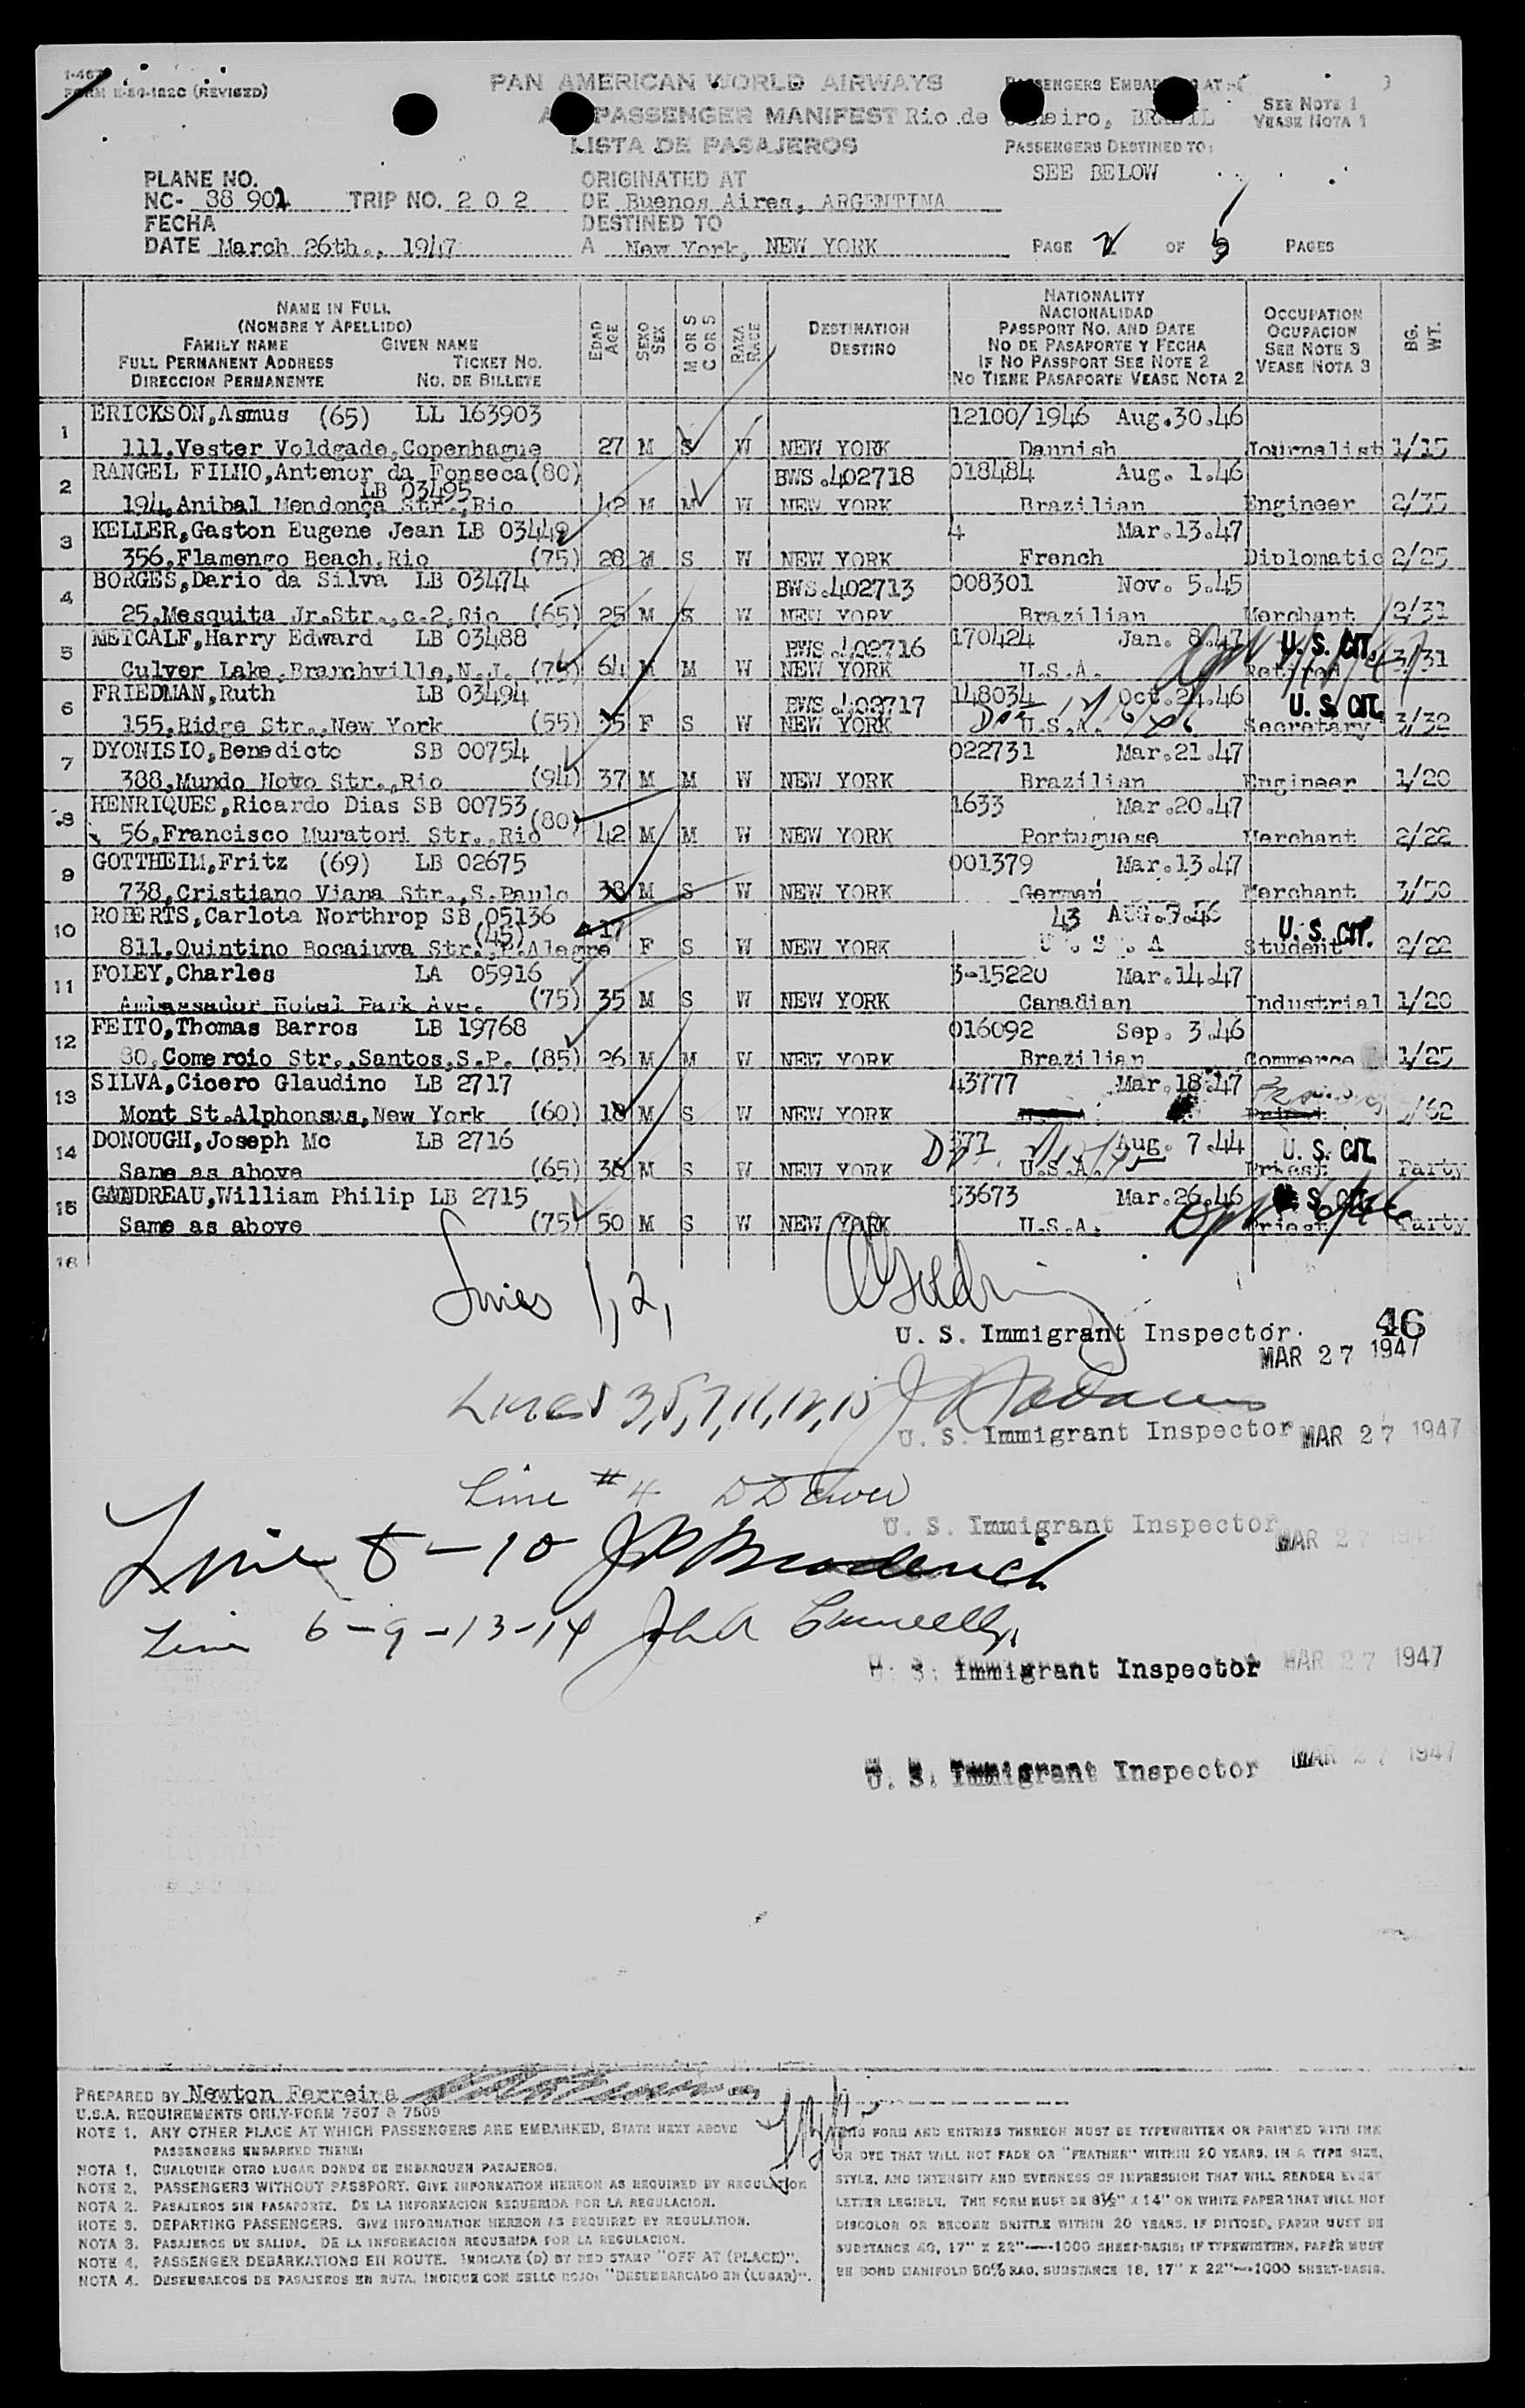 FORM E-20-122C (REVISED)
PAN AMERICAN WORLD AIRWAYS
PASSENGER MANIFEST
LISTA DE PASAJEROS
Rio de
SEE NOTE 1
VEASE NOTA 1
PASSENGERS DESTINED TO:
SEE BELOW
PLANE NO.
NC- 38 902 TRIP NO. 2 0 2
FECHA
DATE March 26th., 1947
ORIGINATED AT
DE Buenos Aires, ARGENTINA
DESTINED TO
A New York, NEW YORK
PAGE 2 OF 5 PAGES
NAME IN FULL
(NOMBRE Y APELLIDO)
FAMILY NAME GIVEN NAME
FULL PERMANENT ADDRESS TICKET NO.
DIRECCION PERMANENTE NO. DE BILLETE
EDAD AGE
SEXO SEX
M OR S C OR S
RAZA RACE
DESTINATION DESTINO
NATIONALITY
NACIONALIDAD
PASSPORT NO. AND DATE
NO DE PASAPORTE Y FECHA
IF NO PASSPORT SEE NOTE 2
NO TIENE PASAPORTE VEASE NOTA 2
OCCUPATION
OCUPACION
SEE NOTE 3
VEASE NOTA 3
BG. WT.
1 ERICKSON,Asmus (65) LL 163903 12100/1946 Aug.30.46
111,Vester Voldgade,Copenhague 27 M S W NEW YORK Dannish Journalist 1/15
2 RANGEL FILHO,Antenor da Fonseca(80) BWS.402718 018484 Aug. 1.46
LB 03495
194,Anibal Mendonça Str.,Rio 42 M M W NEW YORK Brazilian Engineer 2/35
3 KELLER,Gaston Eugene Jean LB 03449 4 Mar.13.47
356,Flamengo Beach,Rio (75) 28 M S W NEW YORK French Diplomatic 2/25
4 BORGES,Dario da Silva LB 03474 BWS.402713 008301 Nov. 5.45
25,Mesquita Jr.Str.,c.2,Rio (65) 25 M S W NEW YORK Brazilian Merchant 2/31
5 METCALF,Harry Edward LB 03488 BWS.402716 170424 Jan. 8.47 U. S. CIT.
Culver Lake,Branchville,N.J. (75) 64 M M W NEW YORK U.S.A. Retired 3/31
6 FRIEDMAN,Ruth LB 03494 BWS.402717 148034 Oct.24.46 U. S. CIT.
155,Ridge Str.,New York (55) 35 F S W NEW YORK U.S.A. Secretary 3/32
7 DYONISIO,Benedicto SB 00754 022731 Mar.21.47
388,Mundo Novo Str.,Rio (94) 37 M M W NEW YORK Brazilian Engineer 1/20
8 HENRIQUES,Ricardo Dias SB 00753 (80) 1633 Mar.20.47
56,Francisco Muratori Str.,Rio 42 M M W NEW YORK Portuguese Merchant 2/22
9 GOTTHEIM,Fritz (69) LB 02675 001379 Mar.13.47
738,Cristiano Viana Str.,S.Paulo 38 M S W NEW YORK German Merchant 3/50
10 ROBERTS,Carlota Northrop SB 05136 43 AUG.7.46 U. S. CIT.
(45) 17
811,Quintino Bocaiuva Str.,P.Alegre F S W NEW YORK U.S.A Student 2/22
11 FOLEY,Charles LA 05916 3-15220 Mar.14.47
Ambassador Hotel Park Ave. (75) 35 M S W NEW YORK Canadian Industrial 1/20
12 FEITO,Thomas Barros LB 19768 016092 Sep. 3.46
80,Comercio Str.,Santos,S.P. (85) 26 M M W NEW YORK Brazilian Commerce 1/25
13 SILVA,Cicero Glaudino LB 2717 43777 Mar.18.47
Mont St.Alphonsus,New York (60) 18 M S W NEW YORK
14 DONOUGH,Joseph Mc LB 2716 377 Aug. 7.44 U. S. CIT.
Same as above (65) 36 M S W NEW YORK U.S.A. Priest Party
15 GAUDREAU,William Philip LB 2715 53673 Mar.26.46 S. CIT.
Same as above (75) 50 M S W NEW YORK U.S.A. Priest Party
16
Lines 1,2,
U. S. Immigrant Inspector.
46
MAR 27 1947
Lines 3,5,7,11,12,15
U. S. Immigrant Inspector MAR 27 1947
Line #4
U. S. Immigrant Inspector MAR 27 1947
Line 8-10 Broderick
Line 6-9-13-14
U. S. Immigrant Inspector MAR 27 1947
U. S. Immigrant Inspector MAR 27 1947
PREPARED BY Newton Ferreira
U.S.A. REQUIREMENTS ONLY-FORM 7507 & 7509
NOTE 1. ANY OTHER PLACE AT WHICH PASSENGERS ARE EMBARKED, STATE NEXT ABOVE
PASSENGERS EMBARKED THERE:
NOTA 1. CUALQUIER OTRO LUGAR DONDE SE EMBARQUEN PASAJEROS.
NOTE 2. PASSENGERS WITHOUT PASSPORT. GIVE INFORMATION HEREON AS REQUIRED BY REGULATION
NOTA 2. PASAJEROS SIN PASAPORTE. DE LA INFORMACION REQUERIDA POR LA REGULACION.
NOTE 3. DEPARTING PASSENGERS. GIVE INFORMATION HEREON AS REQUIRED BY REGULATION.
NOTA 3. PASAJEROS DE SALIDA. DE LA INFORMACION REQUERIDA POR LA REGULACION.
NOTE 4. PASSENGER DEBARKATIONS EN ROUTE. INDICATE (D) BY RED STAMP "OFF AT (PLACE)".
NOTA 4. DESEMBARCOS DE PASAJEROS EN RUTA. INDIQUE CON SELLO ROJO: "DESEMBARCADO EN (LUGAR)".
THIS FORM AND ENTRIES THEREON MUST BE TYPEWRITTEN OR PRINTED WITH INK
OR DYE THAT WILL NOT FADE OR "FEATHER" WITHIN 20 YEARS. IN A TYPE SIZE,
STYLE, AND INTENSITY AND EVENNESS OF IMPRESSION THAT WILL RENDER EVERY
LETTER LEGIBLE. THE FORM MUST BE 8½" X 14" ON WHITE PAPER THAT WILL NOT
DISCOLOR OR BECOME BRITTLE WITHIN 20 YEARS. IF DITTOED, PAPER MUST BE
SUBSTANCE 40, 17" X 22"—1000 SHEET-BASIS; IF TYPEWRITTEN, PAPER MUST
BE BOND MANIFOLD 50% RAG, SUBSTANCE 18, 17" X 22"—1000 SHEET-BASIS.